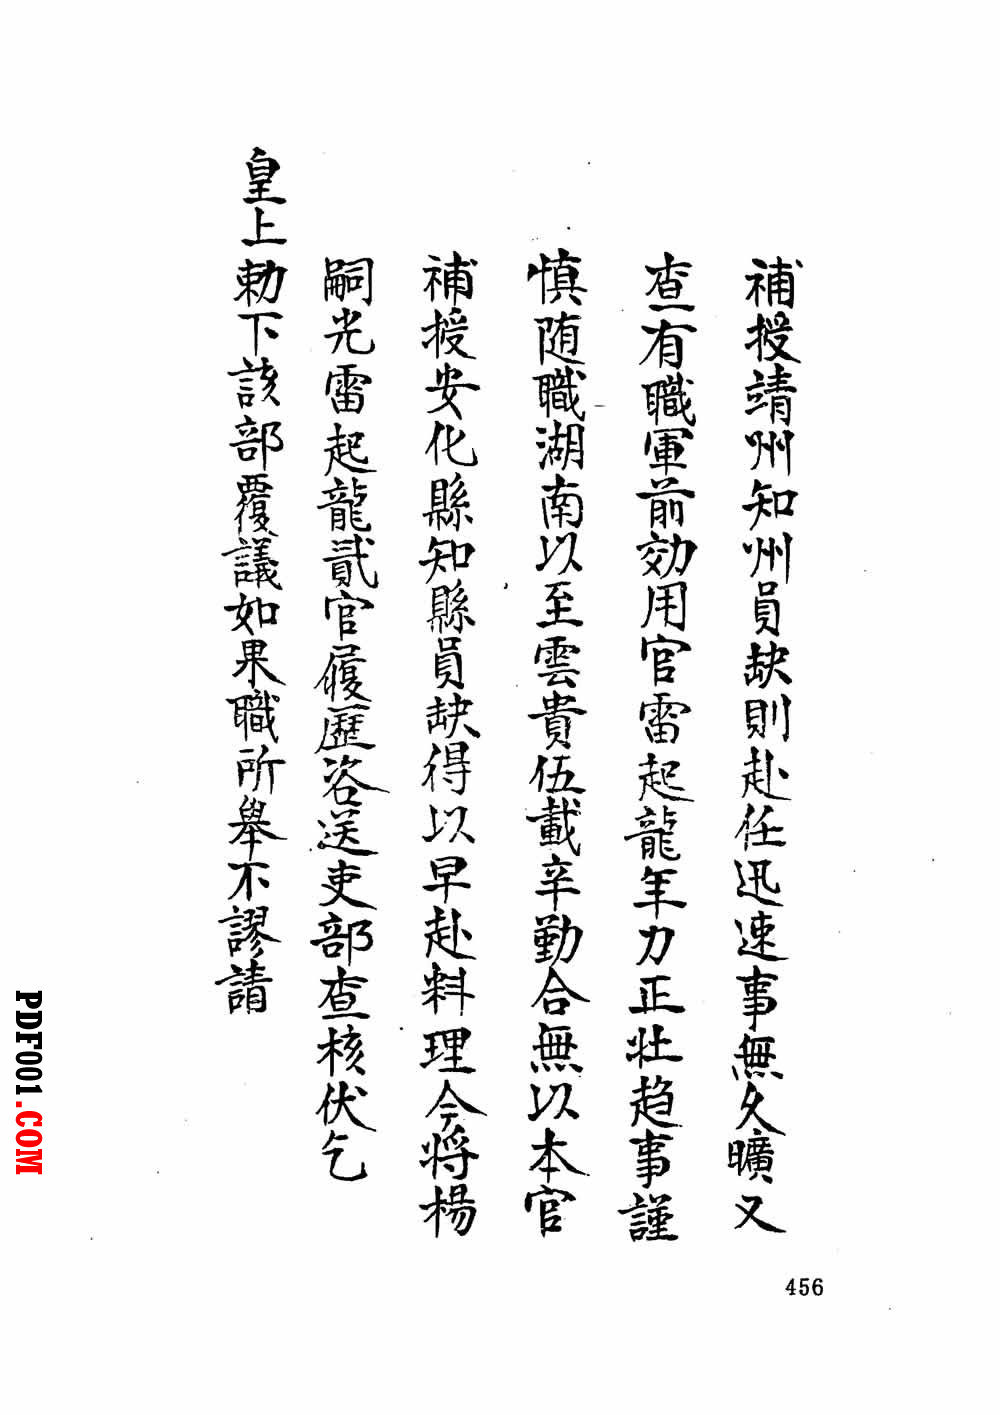 補授靖州知州員缺則赴任迅速事無久曠又
查有職軍前効用官雷起龍年力正壯趋事謹
慎随職湖南以至雲貴伍載辛勤合無以本官
補授安化縣知縣員缺得以早赴料理今将楊
嗣光雷起龍貳官履歷咨送吏部查核伏乞
皇上勅下該部覆議如果職所舉不謬請
456
PDF001.COM